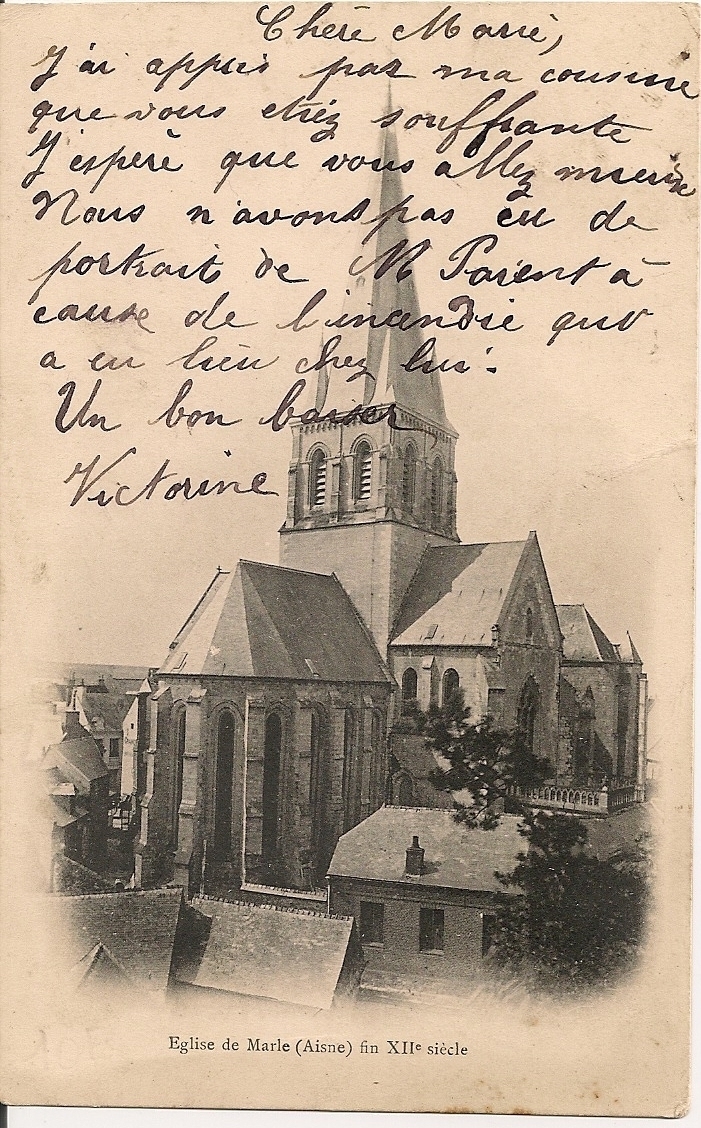 Chère Marie,
J'ai appris par ma cousine
que vous etiéz souffrante
J'espère que vous allez mieux
Nous n'avons pas eu de
portrait de M Parent à
cause de l'incendie qui
a eu lieu chez lui.
Un bon baiser
Victorine
Eglise de Marle (Aisne) fin XIIe siècle